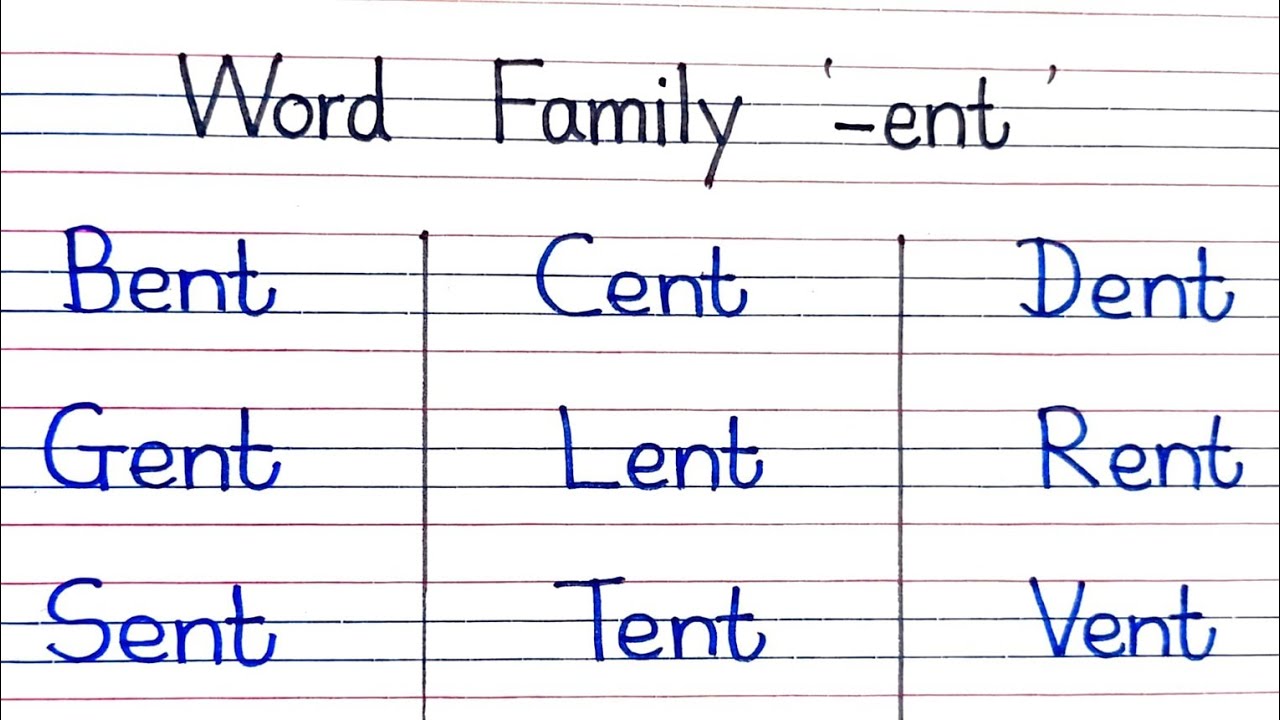 Word Family '-ent'
Bent Cent Dent
Gent Lent Rent
Sent Tent Vent